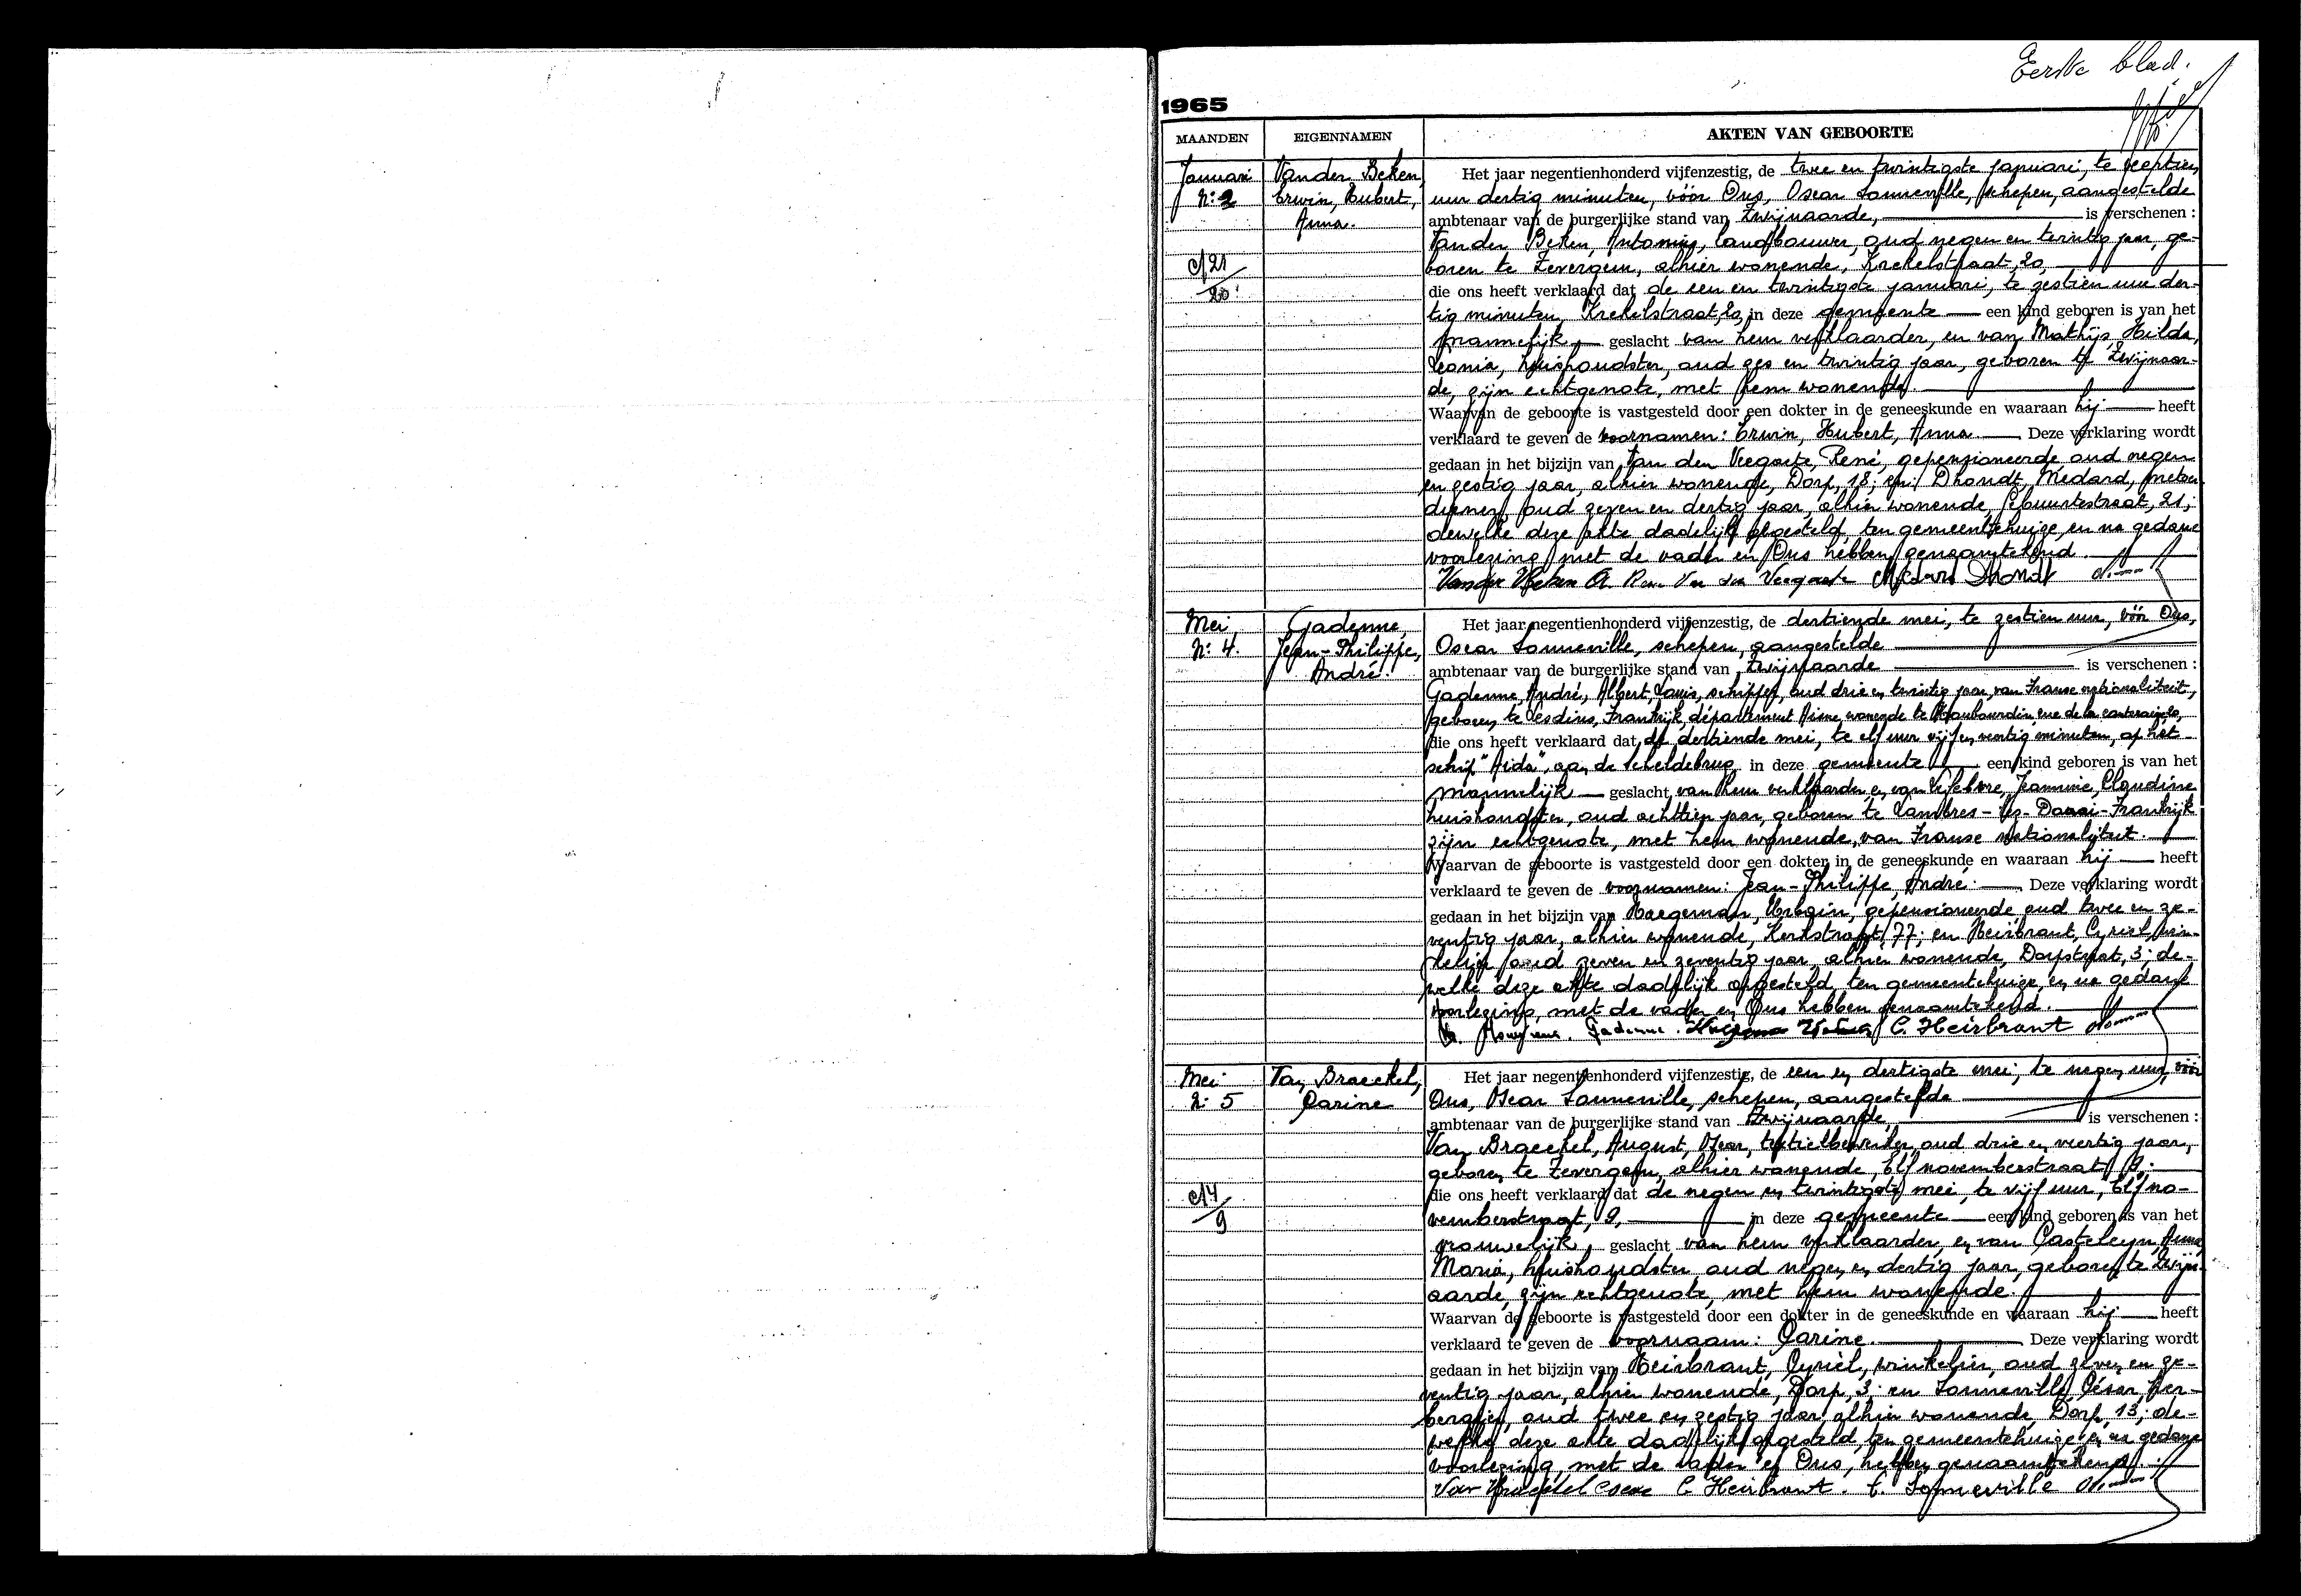 Eerste blad.
1965
MAANDEN EIGENNAMEN AKTEN VAN GEBOORTE
Januari
N: 2
c/21
20
Vander Beken,
Erwin, Hubert,
Anna.
Het jaar negentienhonderd vijfenzestig, de twee en twintigste januari, te veertien
uur dertig minuten, vóór Ons, Oscar Sanneville, schepen, aangestelde
ambtenaar van de burgerlijke stand van Zwijnaarde, is verschenen :
Vander Beken, Antonius, landbouwer, oud negen en twintig jaar, ge-
boren te Zevergem, alhier wonende, Krekelstraat, 20,
die ons heeft verklaard dat de een en twintigste januari, te zestien uur der-
tig minuten, Krekelstraat, 20, in deze gemeente een kind geboren is van het
mannelijk geslacht van hem verklaarder, en van Mathijs, Hilda,
Leonia, huishoudster, oud zes en twintig jaar, geboren te Zwijnaar-
de, zijn echtgenote, met hem wonende.
Waarvan de geboorte is vastgesteld door een dokter in de geneeskunde en waaraan hij heeft
verklaard te geven de voornamen: Erwin, Hubert, Anna. Deze verklaring wordt
gedaan in het bijzijn van Van den Veegaete, René, gepensioneerde, oud negen
en zestig jaar, alhier wonende, Dorp, 18; en: Dhondt, Medard,
oud zeven en dertig jaar, alhier wonende, 21;
dewelke deze akte dadelijk opgesteld, ten gemeentehuize, en na gedane
voorlezing met de vader en Ons hebben genaamtekend.
Vander Beken A. Van den Veegaete Medard Dhondt
Mei
N: 4.
Gadenne,
Jean-Philippe,
André.
Het jaar negentienhonderd vijfenzestig, de dertiende mei, te zestien uur, vóór Ons,
Oscar Sanneville, schepen, aangestelde
ambtenaar van de burgerlijke stand van Zwijnaarde is verschenen :
Gadenne, André, Albert, Louis, schipper, oud drie en twintig jaar, van Franse nationaliteit,
geboren te Lesdins, Frankrijk, département Aisne, wonende te Haubourdin, rue de la
die ons heeft verklaard dat de dertiende mei, te elf uur vijf en veertig minuten, op het
schip "Aida", aan de Scheldebrug, in deze gemeente een kind geboren is van het
mannelijk geslacht, van hem verklaarder en van Lefebvre, Jeannine, Claudine
huishoudster, oud achttien jaar, geboren te Lambres-lez-Douai-Frankrijk
zijn echtgenote, met hem wonende, van Franse nationaliteit.
Waarvan de geboorte is vastgesteld door een dokter in de geneeskunde en waaraan hij heeft
verklaard te geven de voornamen: Jean-Philippe, André. Deze verklaring wordt
gedaan in het bijzijn van Haegeman, gepensioneerde, oud twee en ze-
ventig jaar, alhier wonende, Kerkstraat, 77; en Heirbrant, Cyriel, win-
kelier, oud zeven en zeventig jaar, alhier wonende, Dorpstraat, 3; de-
welke deze akte dadelijk opgesteld, ten gemeentehuize, en na gedane
voorlezing, met de vader en Ons hebben genaamtekend.
Gadenne. C. Heirbrant
Mei
N: 5
c/4
9
Van Braeckel,
Carine
Het jaar negentienhonderd vijfenzestig, de een en dertigste mei, te negen uur, vóór
Ons, Oscar Sanneville, schepen, aangestelde
ambtenaar van de burgerlijke stand van Zwijnaarde, is verschenen :
Van Braeckel, August, Oscar, textielbewerker, oud drie en veertig jaar,
geboren te Zevergem, alhier wonende, Elf novemberstraat, 9,
die ons heeft verklaard dat de negen en twintigste mei, te vijf uur, Elf no-
vemberstraat, 9, in deze gemeente een kind geboren is van het
vrouwelijk, geslacht van hem verklaarder, en van Casteleyn, Anna,
Maria, huishoudster, oud negen en dertig jaar, geboren te Zwijn-
aarde, zijn echtgenote, met hem wonende.
Waarvan de geboorte is vastgesteld door een dokter in de geneeskunde en waaraan hij heeft
verklaard te geven de voornaam: Carine. Deze verklaring wordt
gedaan in het bijzijn van Heirbrant, Cyriel, winkelier, oud zeven en ze-
ventig jaar, alhier wonende, Dorp, 3; en Sanneville, César, her-
bergier, oud twee en zestig jaar, alhier wonende, Dorp, 13; de-
welke deze akte dadelijk opgesteld, ten gemeentehuize, en na gedane
voorlezing, met de vader en Ons, hebben genaamtekend.
Van Braeckel Oscar C. Heirbrant. C. Sanneville